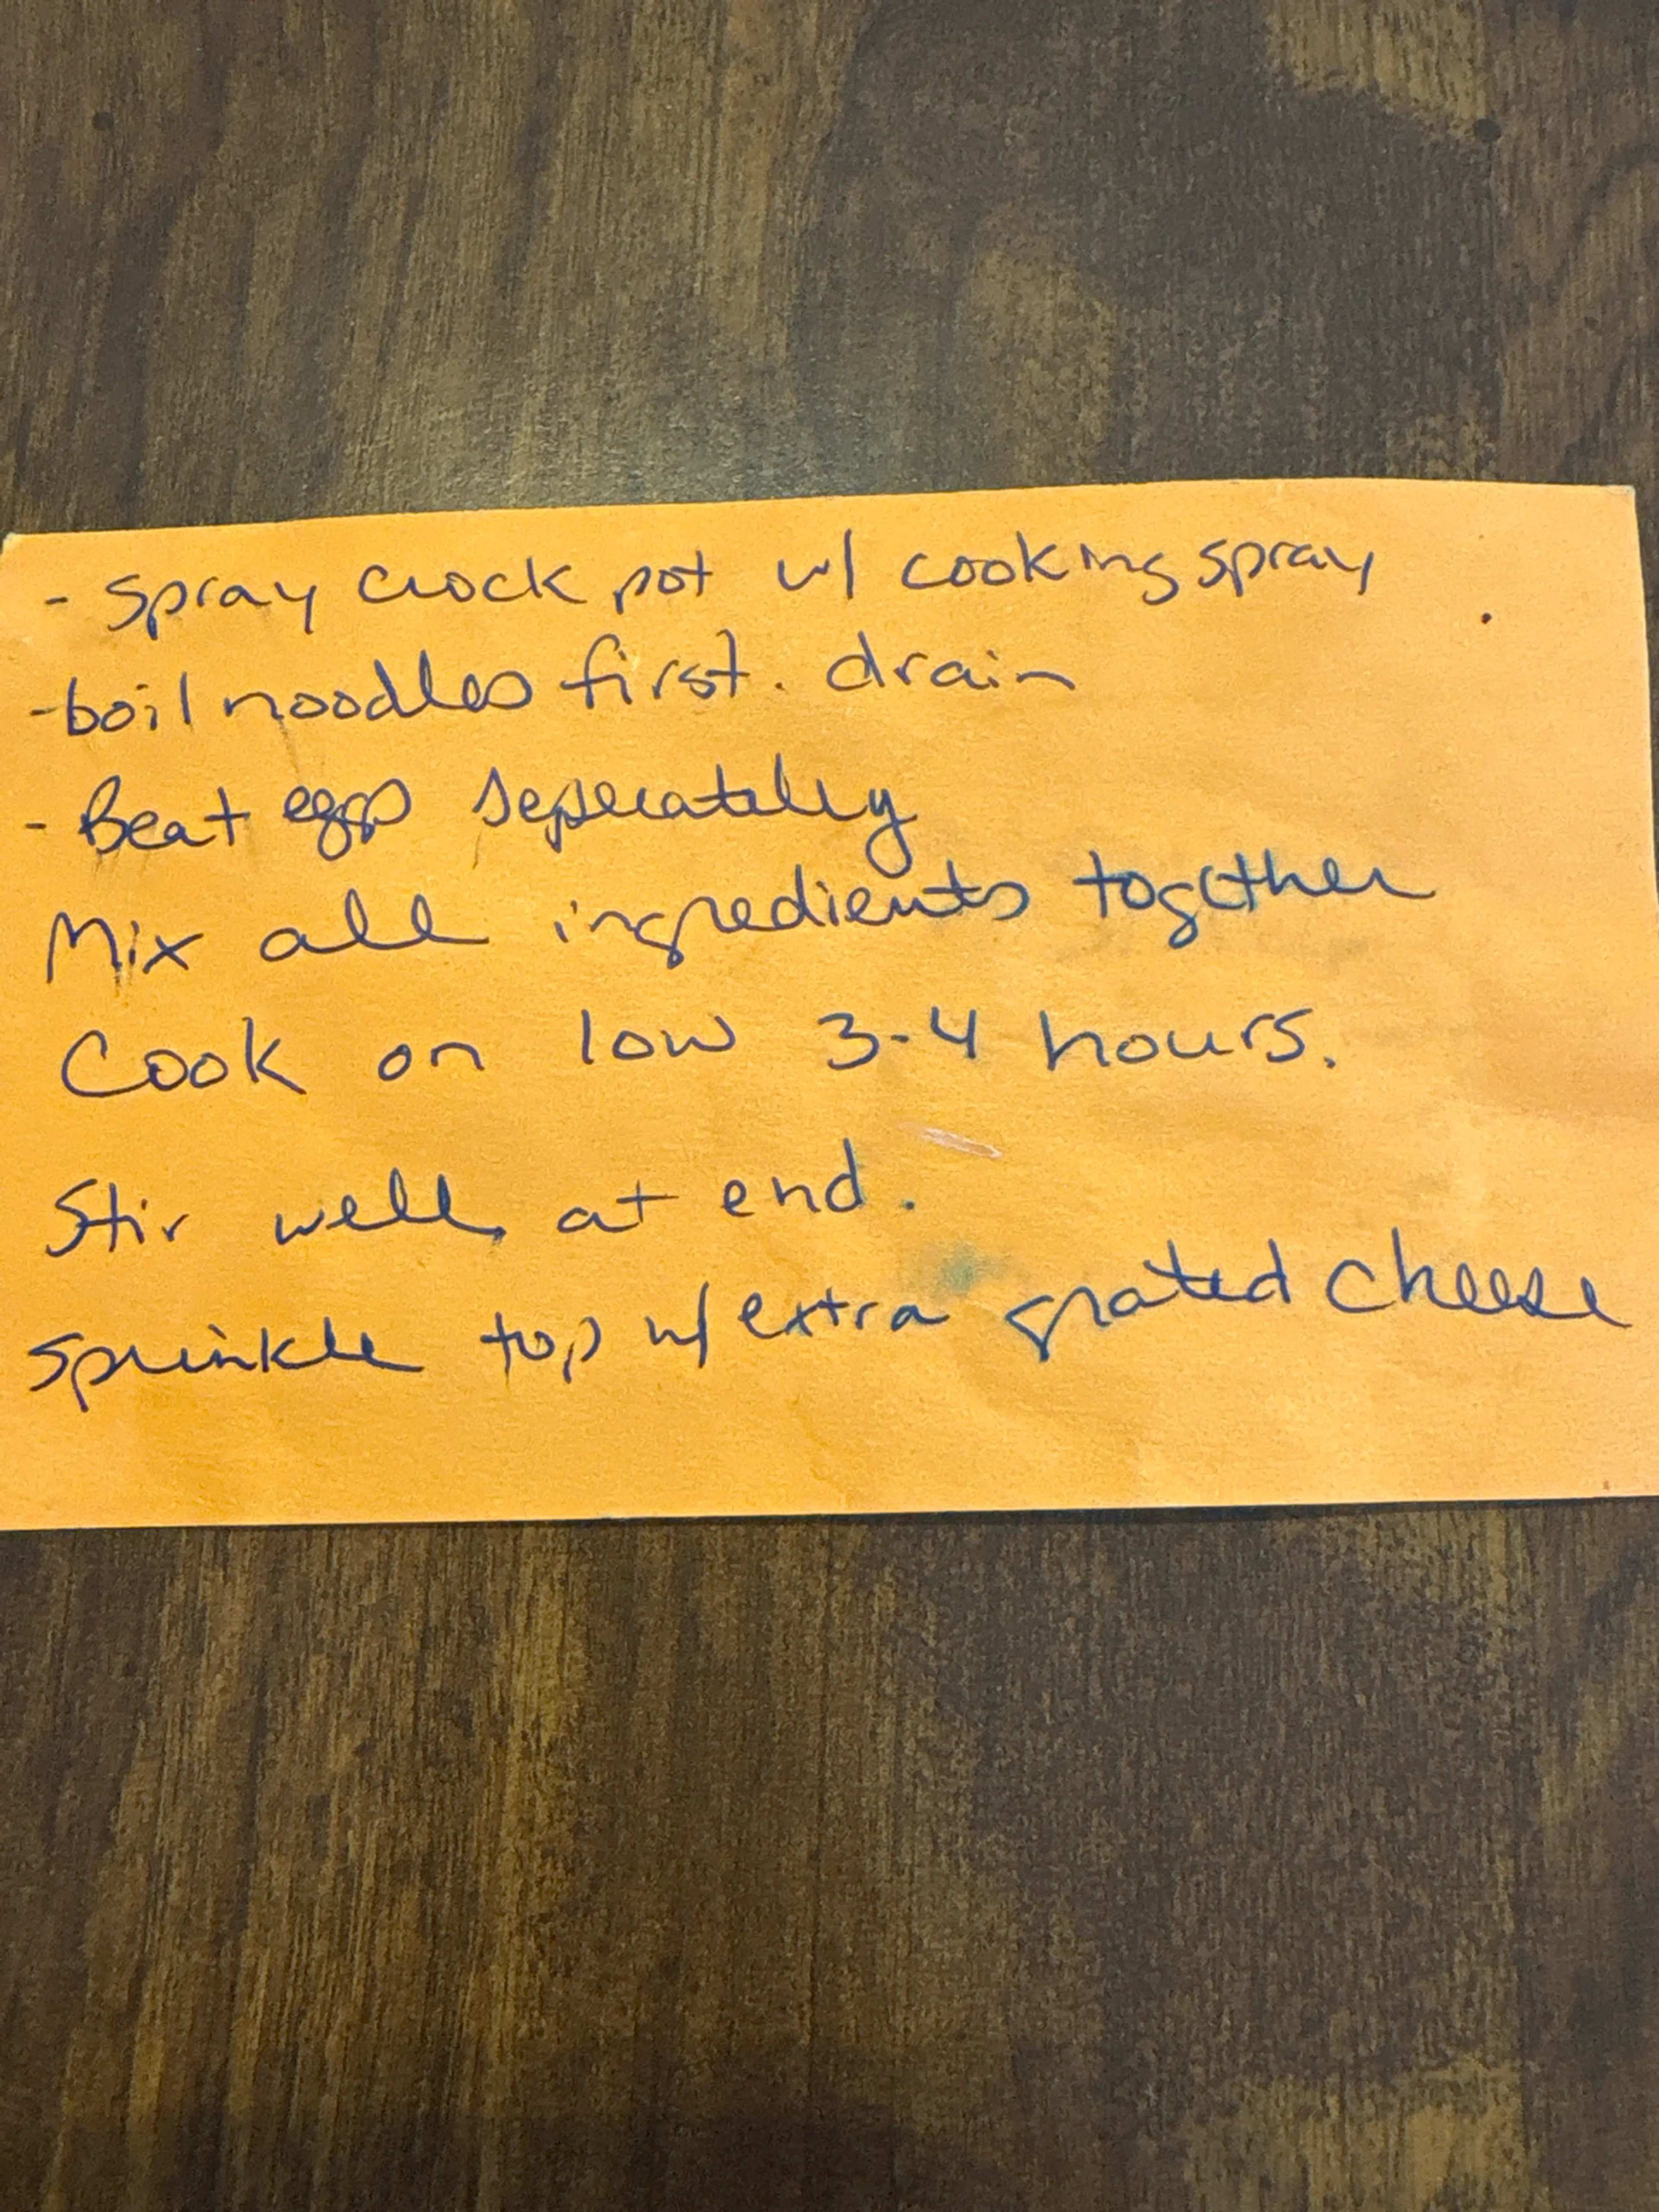 - Spray crock pot w/ cooking spray
- boil noodles first. drain
- Beat eggs seperately
Mix all ingredients together
Cook on low 3-4 hours.
Stir well at end.
Sprinkle top w/ extra grated cheese